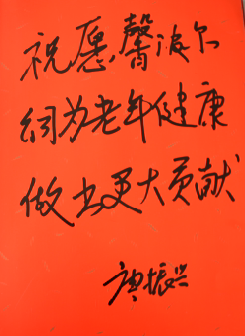 祝愿馨波尔
阁为老年健康
做出更大贡献
唐振兴